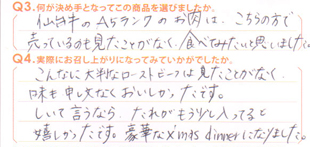 Q3.何が決め手となってこの商品を選びましたか。
仙台牛のA5ランクのお肉は、こちらの方で
売っているのも見たことがなく、食べてみたいと思いました。
Q4.実際にお召し上がりになってみていかがでしたか。
こんなに大判なローストビーフは見たことがなく、
味も申し文なくおいしかったです。
しいて言うなら、たれがもう少し入ってると
嬉しかったです。豪華なX'mas dinnerになりました。